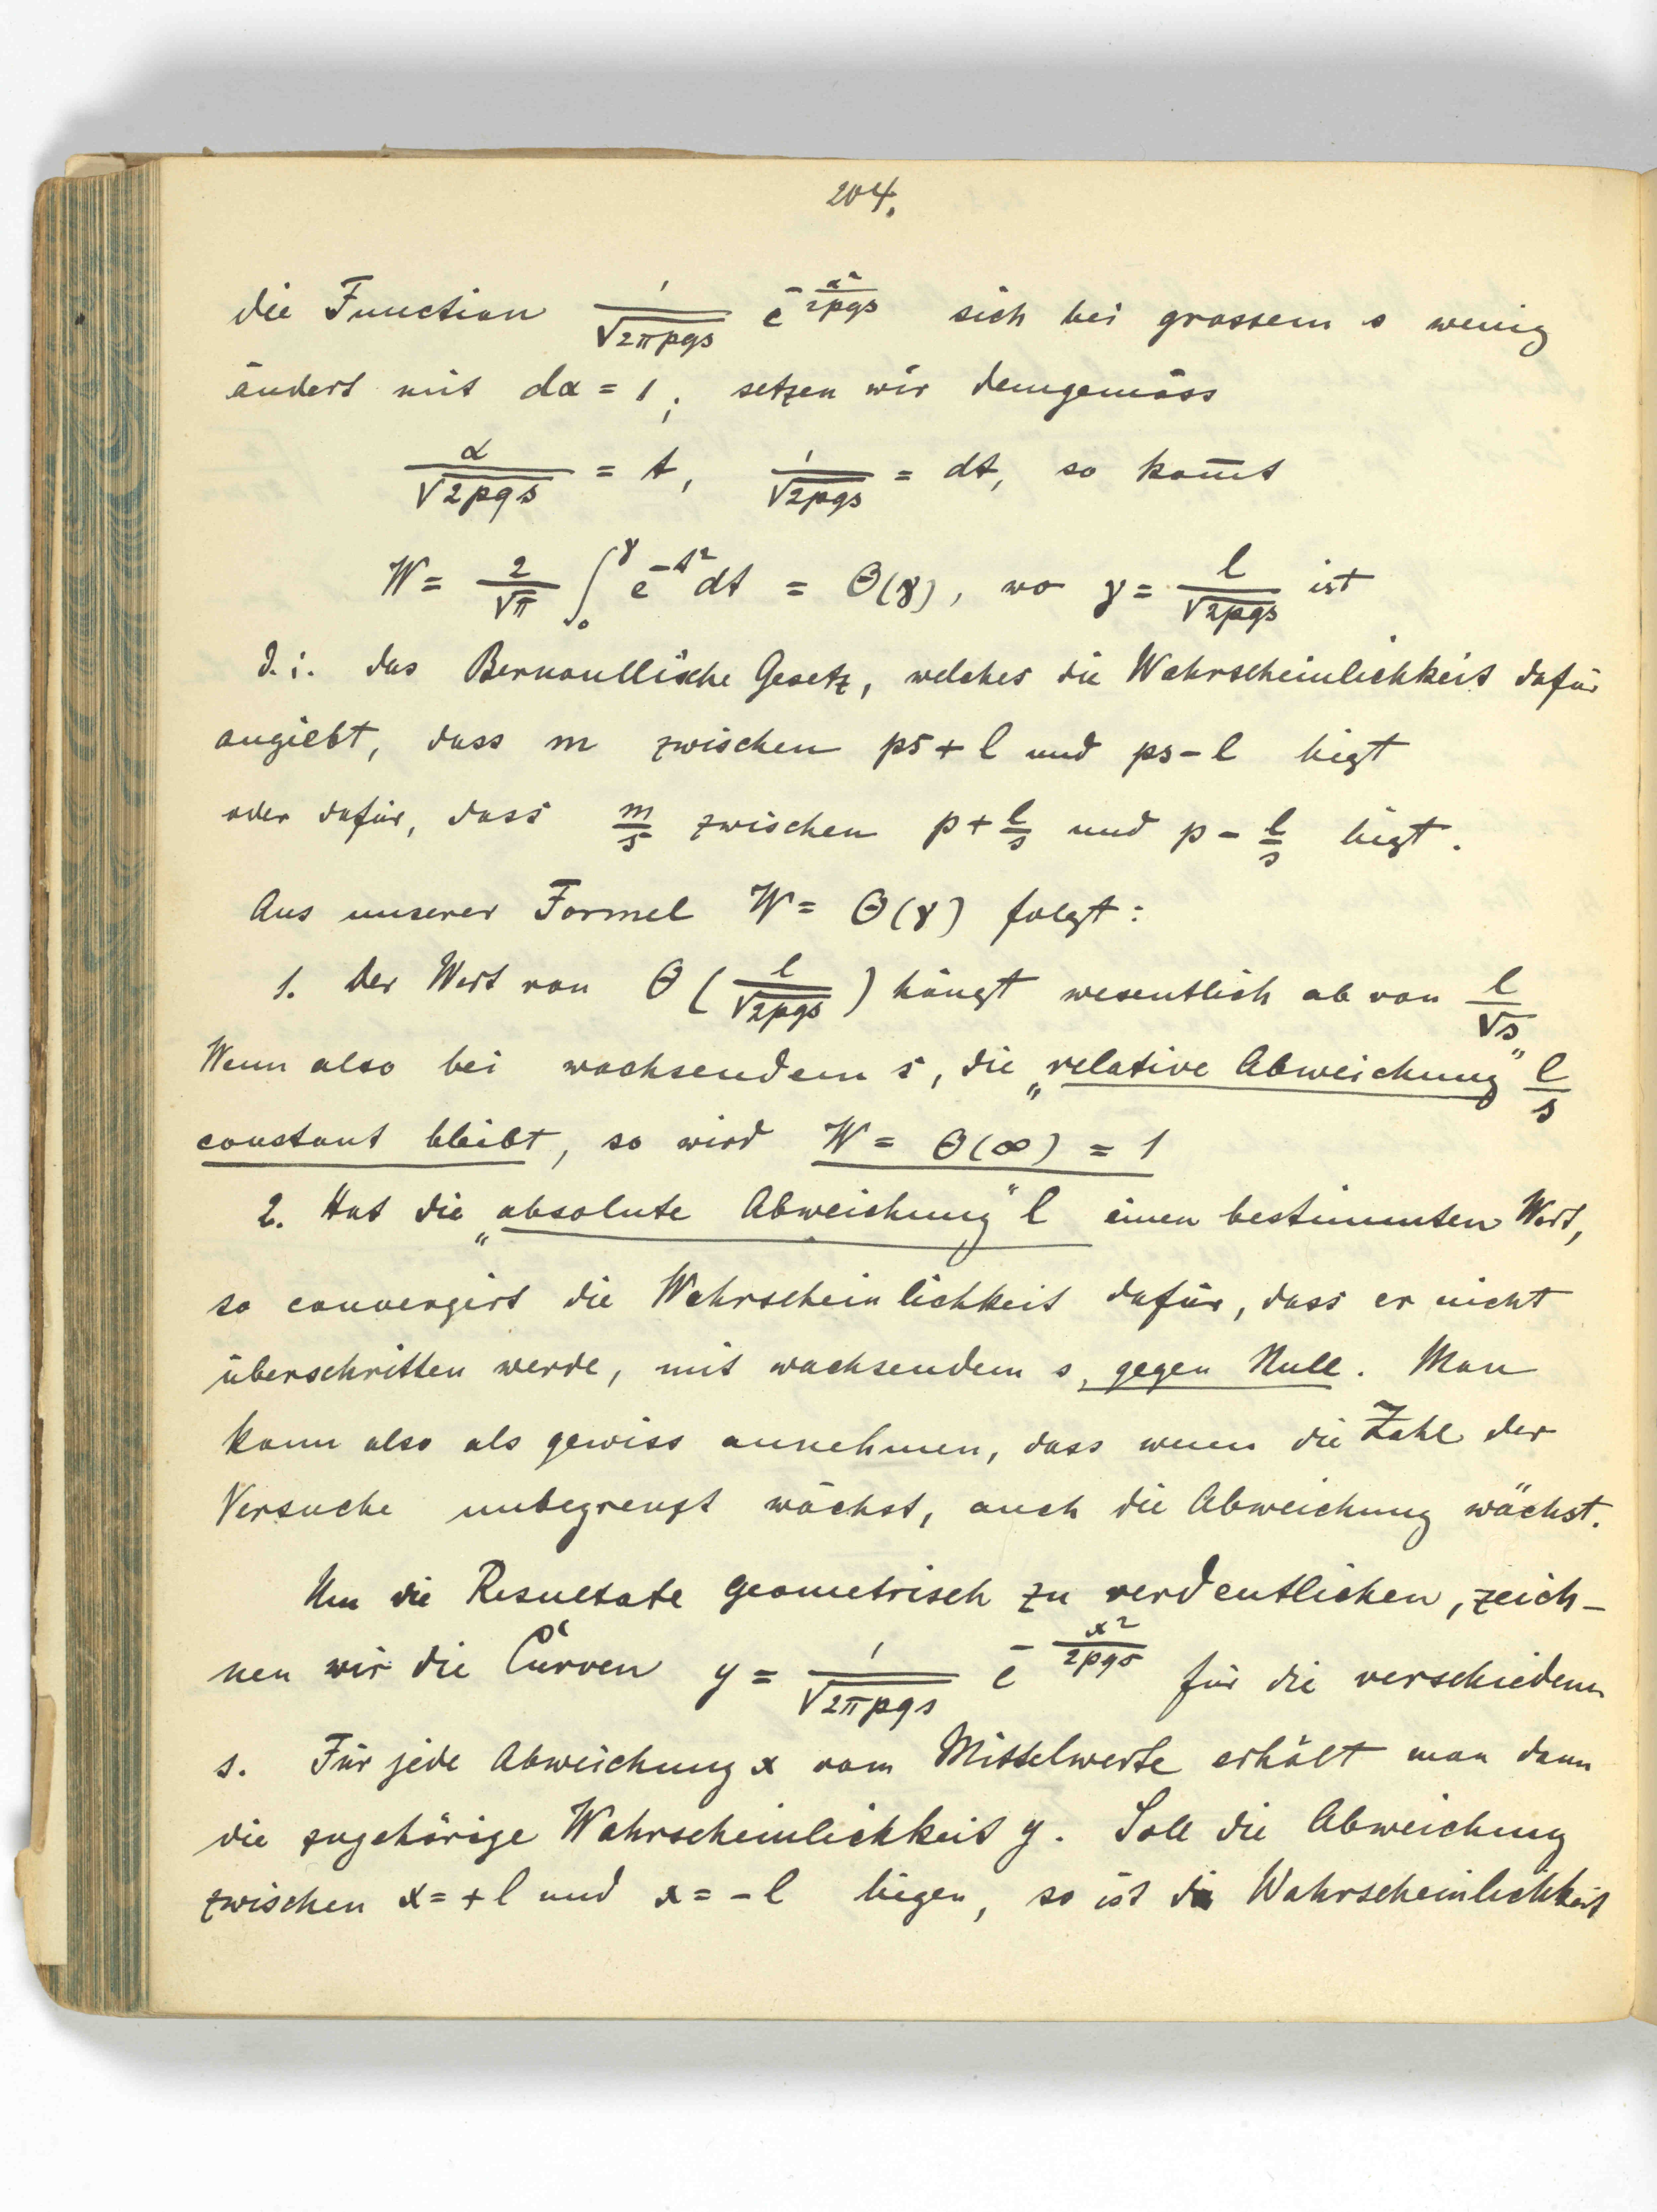 204.
die Function $\frac{1}{\sqrt{2\pi pqs}} e^{-\frac{\alpha^2}{2pqs}}$ sich bei grossem s wenig
ändert mit dα = 1; setzen wir demgemäss
$\frac{\alpha}{\sqrt{2pqs}} = t, \frac{1}{\sqrt{2pqs}} = dt$, so kom̄t
$W = \frac{2}{\sqrt{\pi}} \int_0^\gamma e^{-t^2} dt = \Theta(\gamma)$, wo $\gamma = \frac{l}{\sqrt{2pqs}}$ ist
d. i. das Bernoullische Gesetz, welches die Wahrscheinlichkeit dafür
angiebt, dass m zwischen ps + l und ps − l liegt
oder dafür, dass $\frac{m}{s}$ zwischen $p + \frac{l}{s}$ und $p - \frac{l}{s}$ liegt.
Aus unserer Formel W = Θ(γ) folgt:
1. Der Wert von $\Theta(\frac{l}{\sqrt{2pqs}})$ hängt wesentlich ab von $\frac{l}{\sqrt{s}}$
Wenn also bei wachsendem s, die „relative Abweichung“ $\frac{l}{s}$
constant bleibt, so wird W = Θ(∞) = 1
2. Hat die „absolute Abweichung“ l einen bestimmten Wert,
so convergirt die Wahrscheinlichkeit dafür, dass er nicht
überschritten werde, mit wachsendem s, gegen Null. Man
kann also als gewiss annehmen, dass wenn die Zahl der
Versuche unbegrenzt wächst, auch die Abweichung wächst.
Um die Resultate geometrisch zu verdeutlichen, zeich-
nen wir die Curven $y = \frac{1}{\sqrt{2\pi pqs}} e^{-\frac{x^2}{2pqs}}$ für die verschiedenen
s. Für jede Abweichung x vom Mittelwerte erhält man dann
die zugehörige Wahrscheinlichkeit y. Soll die Abweichung
zwischen x = + l und x = − l liegen, so ist die Wahrscheinlichkeit